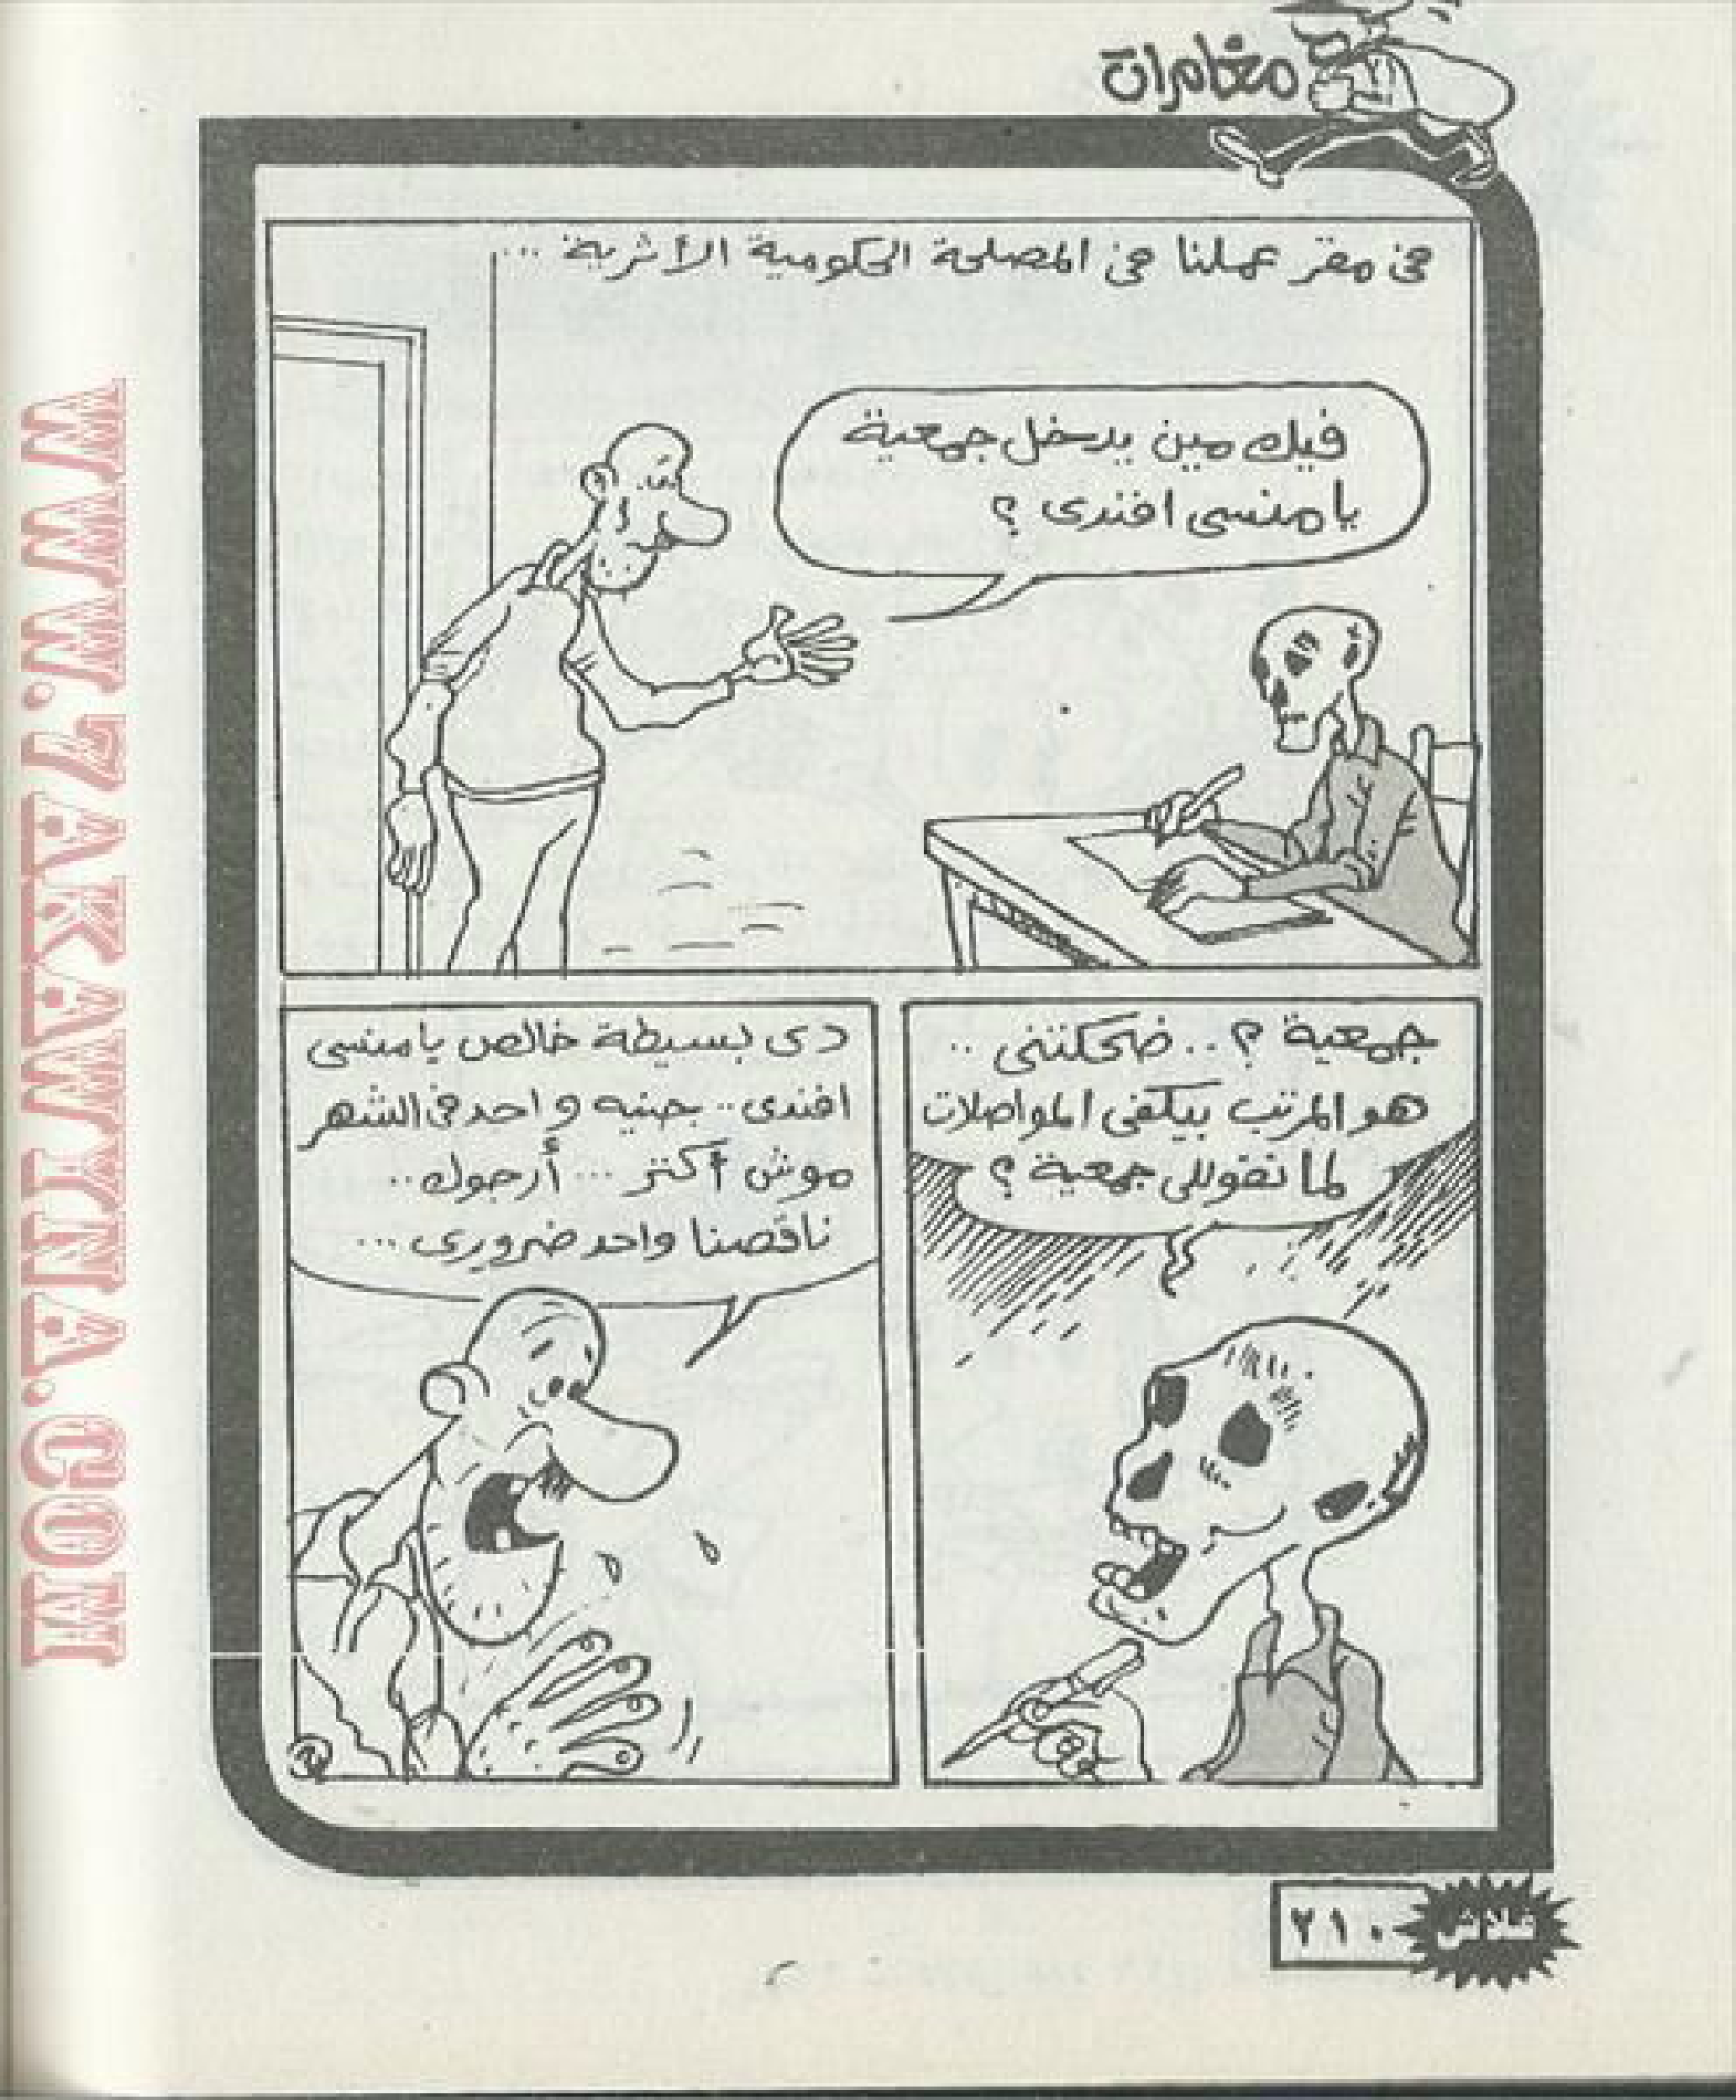 مغامرات
فى مقر عملنا فى المصلحة الحكومية الأثرية ...
فيك مين يدخل جمعية
يا منسى افندى ؟
جمعية ؟ .. ضحكتنى ..
هو المرتب بيكفى المواصلات
لما تقوللى جمعية ؟
دى بسيطة خالص يا منسى
افندى .. جنيه واحد فى الشهر
موش أكتر ... أرجوك ..
ناقصنا واحد ضرورى ...
فلاش
٢١٠
WWW.7AKAWITNA.COM